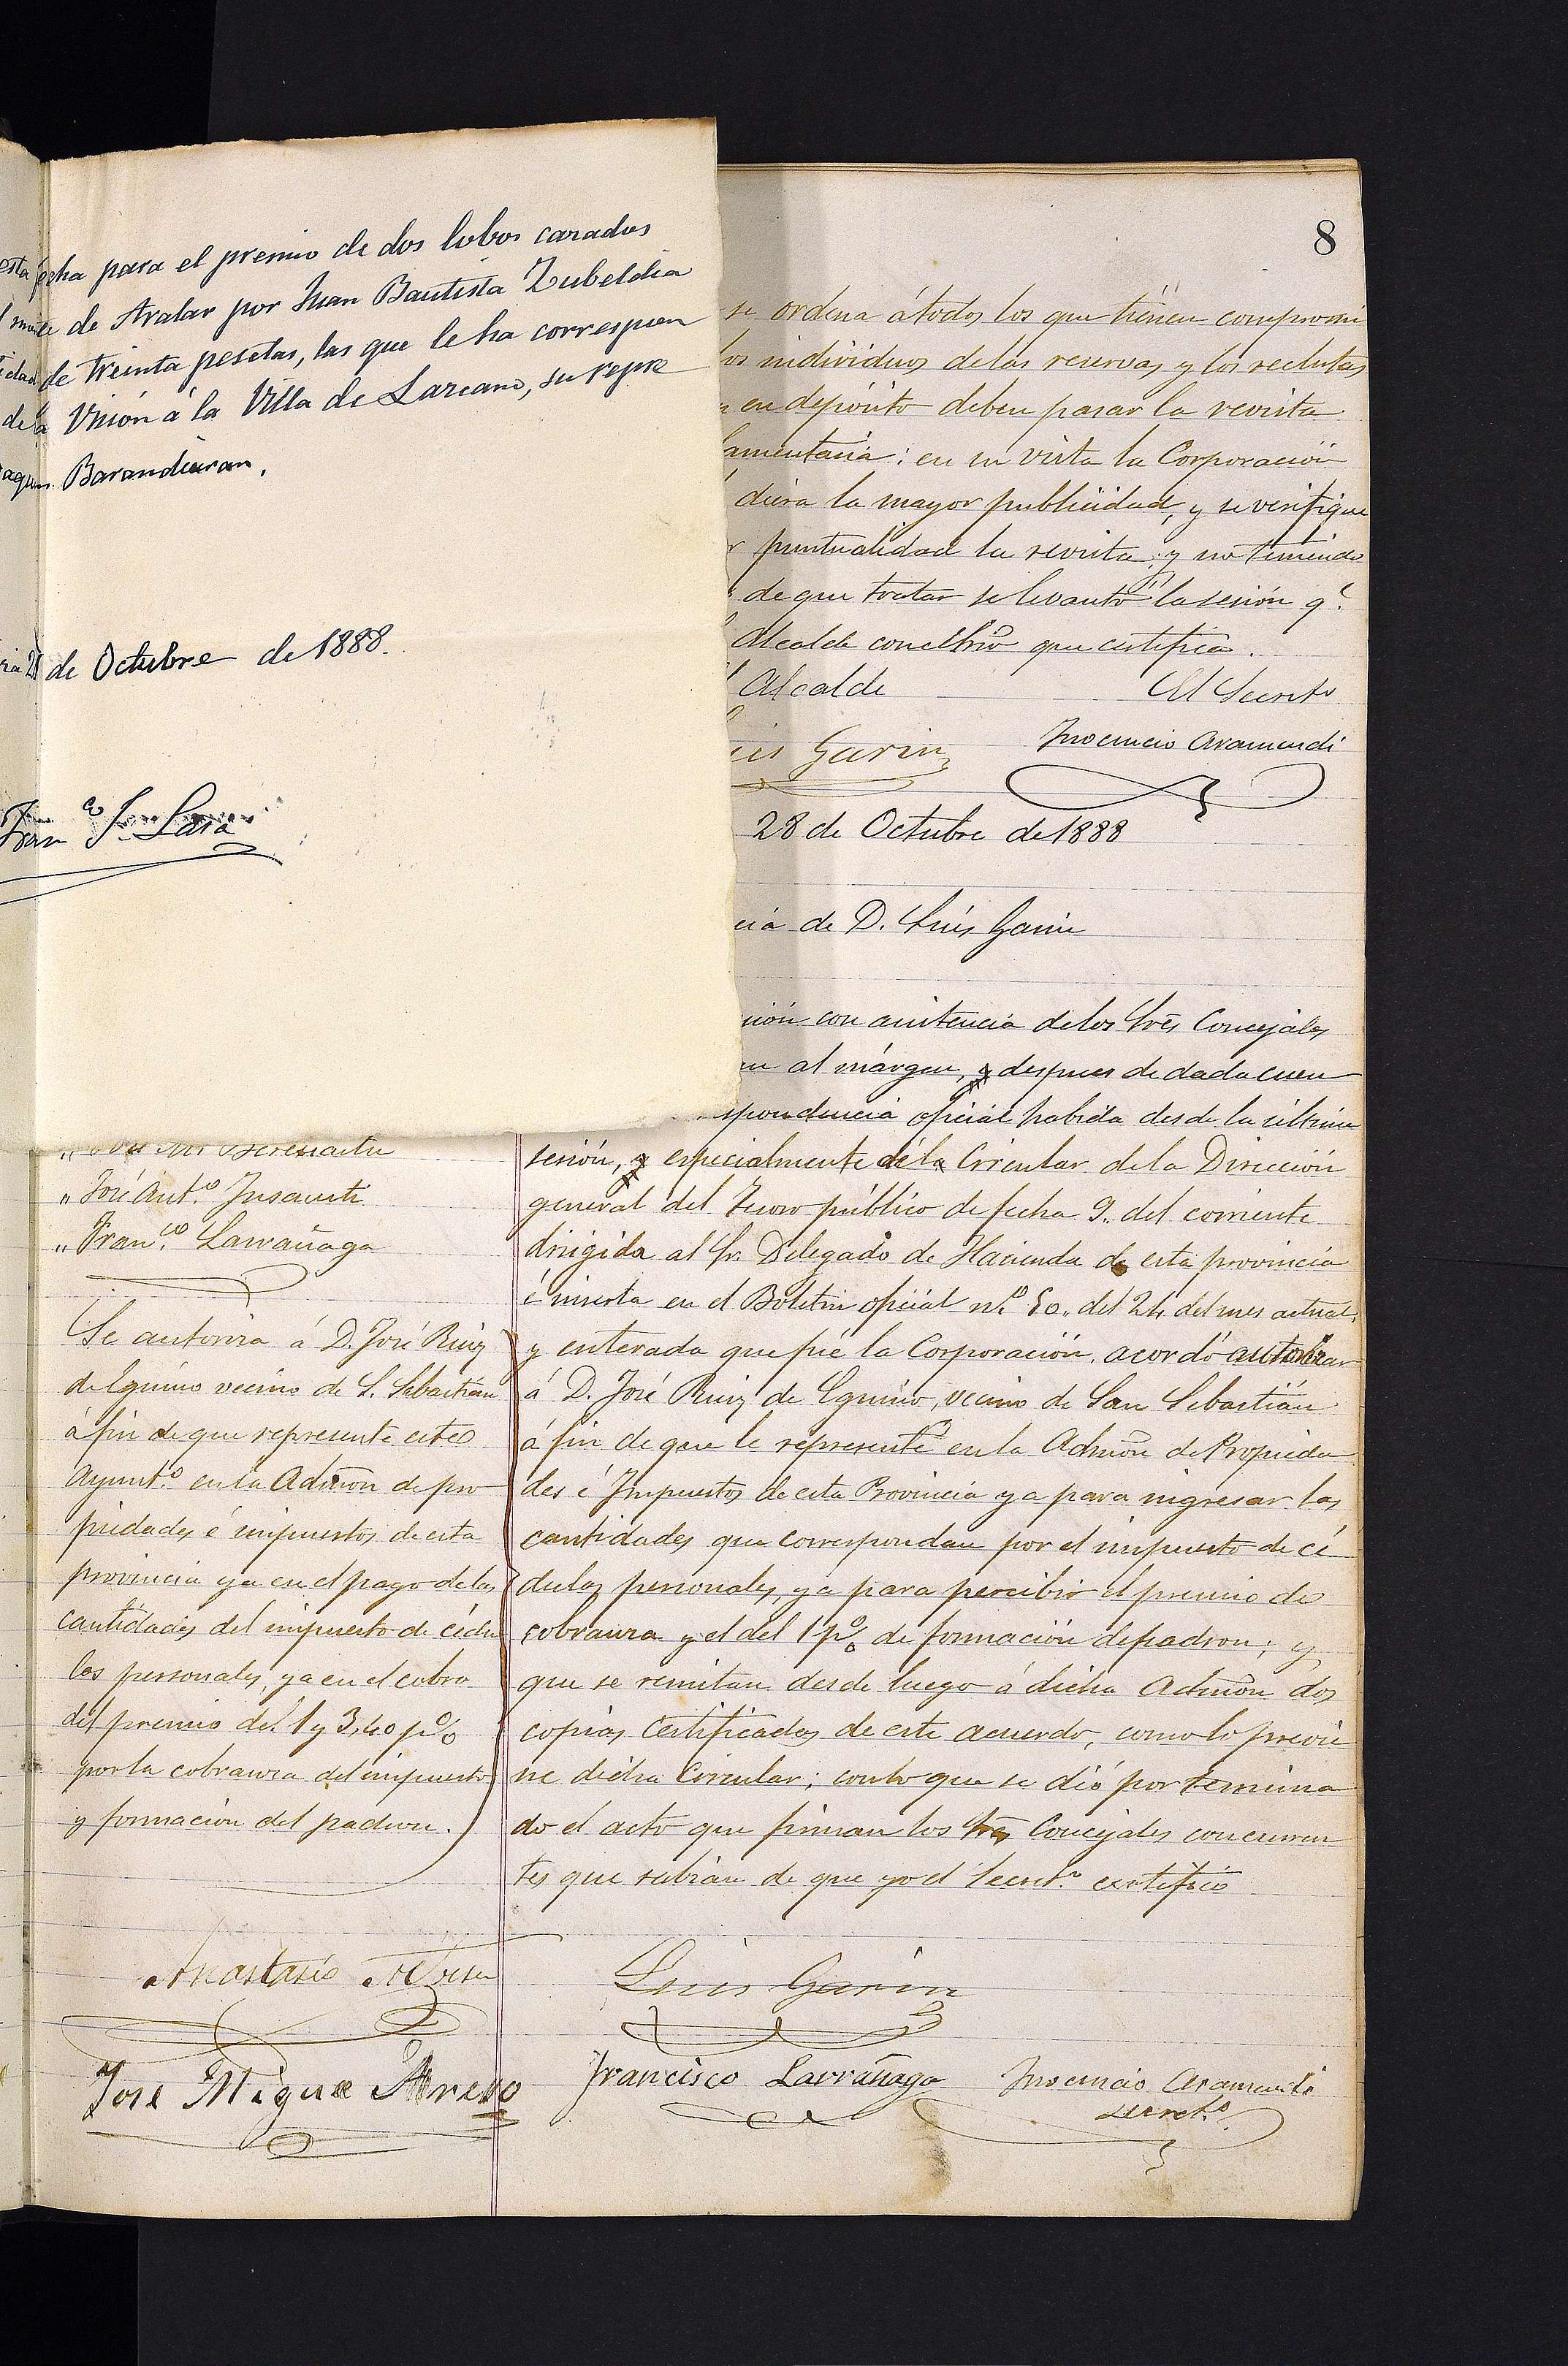 8
esta fecha para el premio de dos lobos cazados
l monte de Aralar por Juan Bautista Zubeldia
de treinta pesetas, las que le ha correspon
de la Unión á la Villa de Lazcano, su repre
Barandiaran.
de Octubre de 1888.
Franco S. Lasa
se ordena á todos los que tienen compromi
los individuos de las reservas y los reclutas
en depósito deben pasar la revista
amentaria: en su vista la Corporación
diera la mayor publicidad, y se verifique
r puntualidad la revista; y no teniendo
de que tratar se levantó la sesión q.e
Alcalde con el Srio que certifica.
Alcalde El Secreto
uis Garin Inocencio Aramendi
28 de Octubre de 1888
cia de D. Luis Garin
sión con asistencia de los Sres Concejales
an al márgen, y despues de dada cuen
spondencia oficial habida desde la última
sesión, y especialmente de la Circular de la Dirección
general del Tesoro público de fecha 9. del corriente
dirigida al Sr. Delegado de Hacienda de esta provincia
é inserta en el Boletin oficial n.o 50. del 24 del mes actual,
y enterada que fué la Corporación, acordó autorizar
á D. José Ruiz de Eguino, vecino de San Sebastián
á fin de que le represente en la Admon de Propieda
des é Impuestos de esta Provincia ya para ingresar las
cantidades que correspondan por el impuesto de cé
dulas personales, ya para percibir el premio de
cobranza y el del 1 p% de formación de padron; y
que se remitan desde luego á dicha Admon dos
copias certificadas de este acuerdo, como lo previe
ne dicha Circular; con lo que se dió por termina
do el acto que firman los Sres Concejales concurren
tes que sabian de que yo el Secret.o certifico
„ José Ant.o Insausti
„ Fran.co Larrañaga
Se autoriza á D. José Ruiz
de Eguino vecino de S. Sebastian
á fin de que represente este
Ayunt.o en la Admon de pro
piedades é impuestos de esta
provincia ya en el pago de las
cantidades del impuesto de cédu
las personales, ya en el cobro
del premio del 1 y 3,40 p%
por la cobranza del impuesto
y formación del padron.
Anastasio
Luis Garin
José Migue
Francisco Larrañaga
Inocencio Aramendi
Secret.o